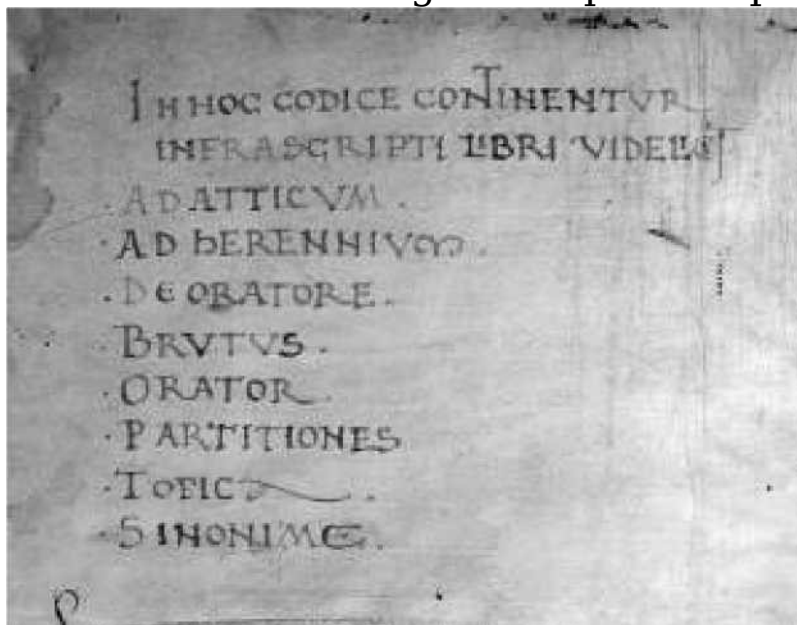 IN HOC CODICE CONTINENTVR
INFRASCRIPTI LIBRI VIDELICET
·AD ATTICVM.
·AD hERENNIVM.
·DE ORATORE.
·BRVTVS.
·ORATOR.
·PARTITIONES
·TOPICA.
·SINONIME.